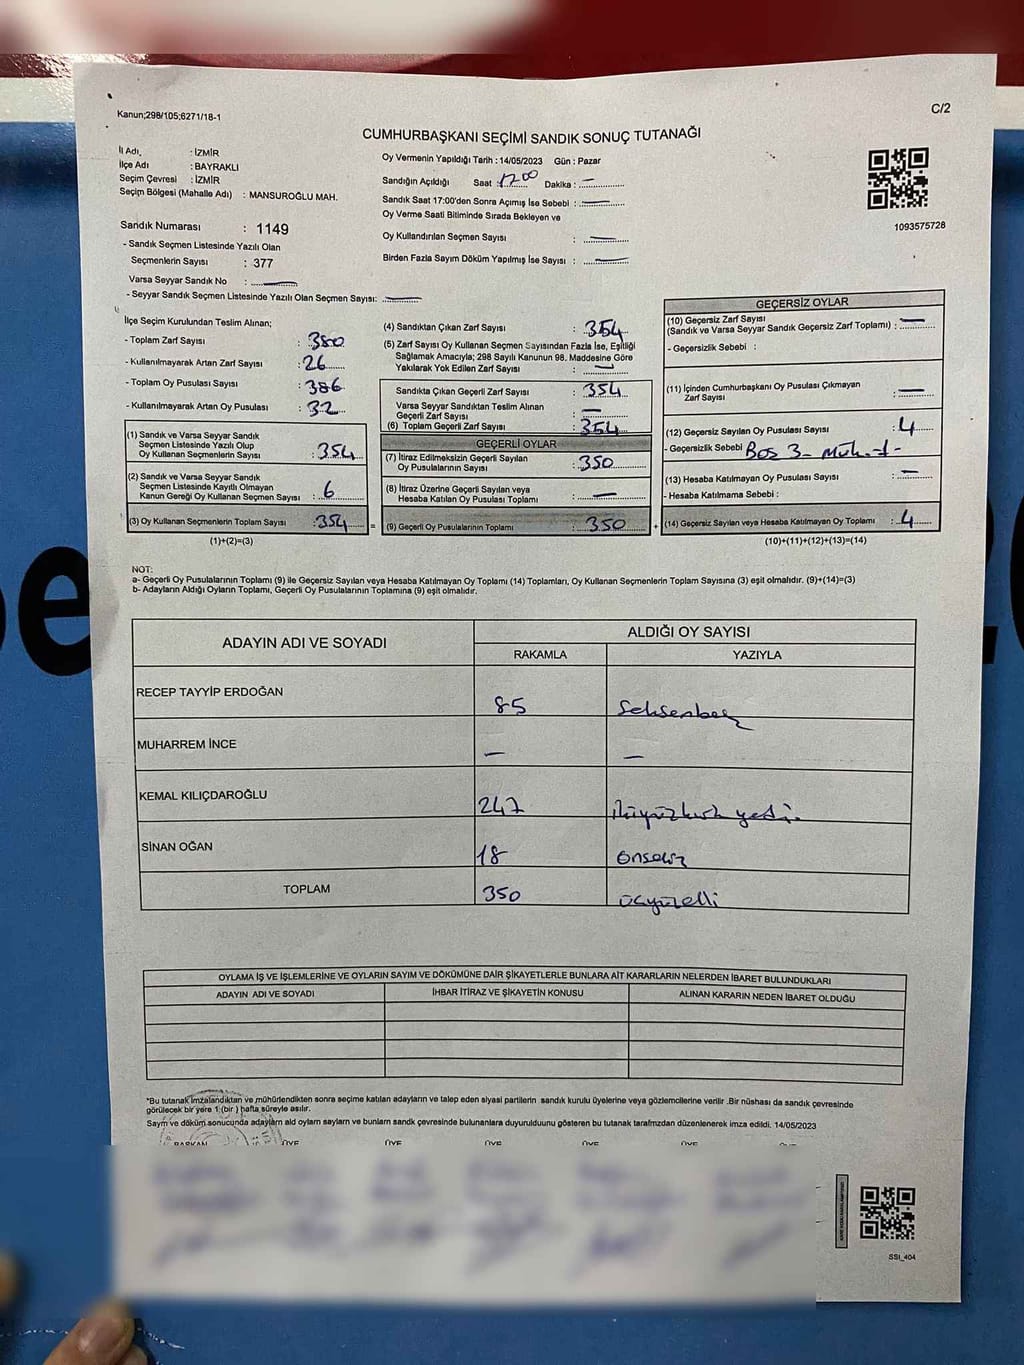 Kanun;298/105;6271/18-1
C/2
CUMHURBAŞKANI SEÇİMİ SANDIK SONUÇ TUTANAĞI
İl Adı, : İZMİR
İlçe Adı : BAYRAKLI
Seçim Çevresi : İZMİR
Seçim Bölgesi (Mahalle Adı) : MANSUROĞLU MAH.
Sandık Numarası : 1149
- Sandık Seçmen Listesinde Yazılı Olan
Seçmenlerin Sayısı : 377
Varsa Seyyar Sandık No :
- Seyyar Sandık Seçmen Listesinde Yazılı Olan Seçmen Sayısı:
Oy Vermenin Yapıldığı Tarih : 14/05/2023 Gün : Pazar
Sandığın Açıldığı Saat : 17.00 Dakika : —
Sandık Saat 17:00'den Sonra Açımış İse Sebebi : —
Oy Verme Saati Bitiminde Sırada Bekleyen ve
Oy Kullandırılan Seçmen Sayısı : —
Birden Fazla Sayım Döküm Yapılmış İse Sayısı : —
1093575728
İlçe Seçim Kurulundan Teslim Alınan;
- Toplam Zarf Sayısı : 380
- Kullanılmayarak Artan Zarf Sayısı : 26
- Toplam Oy Pusulası Sayısı : 386
- Kullanılmayarak Artan Oy Pusulası : 32
(1) Sandık ve Varsa Seyyar Sandık
Seçmen Listesinde Yazılı Olup
Oy Kullanan Seçmenlerin Sayısı : 354
(2) Sandık ve Varsa Seyyar Sandık
Seçmen Listesinde Kayıtlı Olmayan
Kanun Gereği Oy Kullanan Seçmen Sayısı : 6
(3) Oy Kullanan Seçmenlerin Toplam Sayısı : 354 =
(1)+(2)=(3)
(4) Sandıktan Çıkan Zarf Sayısı : 354
(5) Zarf Sayısı Oy Kullanan Seçmen Sayısından Fazla İse, Eşitliği
Sağlamak Amacıyla; 298 Sayılı Kanunun 98. Maddesine Göre
Yakılarak Yok Edilen Zarf Sayısı : —
Sandıkta Çıkan Geçerli Zarf Sayısı : 354
Varsa Seyyar Sandıktan Teslim Alınan
Geçerli Zarf Sayısı : —
(6) Toplam Geçerli Zarf Sayısı : 354
GEÇERLİ OYLAR
(7) İtiraz Edilmeksizin Geçerli Sayılan
Oy Pusulalarının Sayısı : 350
(8) İtiraz Üzerine Geçerli Sayılan veya
Hesaba Katılan Oy Pusulası Toplamı : —
(9) Geçerli Oy Pusulalarının Toplamı : 350 +
GEÇERSİZ OYLAR
(10) Geçersiz Zarf Sayısı
(Sandık ve Varsa Seyyar Sandık Geçersiz Zarf Toplamı) : —
- Geçersizlik Sebebi :
(11) İçinden Cumhurbaşkanı Oy Pusulası Çıkmayan
Zarf Sayısı : —
(12) Geçersiz Sayılan Oy Pusulası Sayısı : 4
- Geçersizlik Sebebi Boş 3-
(13) Hesaba Katılmayan Oy Pusulası Sayısı : —
- Hesaba Katılmama Sebebi :
(14) Geçersiz Sayılan veya Hesaba Katılmayan Oy Toplamı : 4
(10)+(11)+(12)+(13)=(14)
NOT:
a- Geçerli Oy Pusulalarının Toplamı (9) ile Geçersiz Sayılan veya Hesaba Katılmayan Oy Toplamı (14) Toplamları, Oy Kullanan Seçmenlerin Toplam Sayısına (3) eşit olmalıdır. (9)+(14)=(3)
b- Adayların Aldığı Oyların Toplamı, Geçerli Oy Pusulalarının Toplamına (9) eşit olmalıdır.
ADAYIN ADI VE SOYADI
ALDIĞI OY SAYISI
RAKAMLA YAZIYLA
RECEP TAYYİP ERDOĞAN 85 Seksenbeş
MUHARREM İNCE — —
KEMAL KILIÇDAROĞLU 247 ikiyüzkırk yedi
SİNAN OĞAN 18 Onsekiz
TOPLAM 350 üçyüzelli
OYLAMA İŞ VE İŞLEMLERİNE VE OYLARIN SAYIM VE DÖKÜMÜNE DAİR ŞİKAYETLERLE BUNLARA AİT KARARLARIN NELERDEN İBARET BULUNDUKLARI
ADAYIN ADI VE SOYADI İHBAR İTİRAZ VE ŞİKAYETİN KONUSU ALINAN KARARIN NEDEN İBARET OLDUĞU
*Bu tutanak imzalandıktan ve mühürlendikten sonra seçime katılan adayların ve talep eden siyasi partilerin sandık kurulu üyelerine veya gözlemcilerine verilir .Bir nüshası da sandık çevresinde
görülecek bir yere 1 (bir ) hafta süreyle asılır.
Sayım ve döküm sonucunda adayların ald oyların sayların ve bunların sandık çevresinde bulunanlara duyurulduunu gösteren bu tutanak tarafmzdan düzenlenerek imza edildi. 14/05/2023
BAŞKAN ÜYE ÜYE ÜYE ÜYE ÜYE
SSI_404